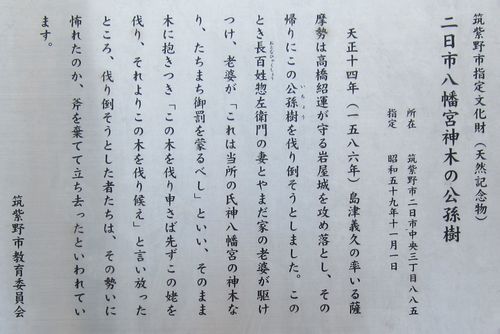 筑紫野市指定文化財（天然記念物）
二日市八幡宮神木の公孫樹
所在　筑紫野市二日市中央三丁目八八五
指定　昭和五十九年十一月一日
天正十四年（一五八六年）島津義久の率いる薩
摩勢は高橋紹運が守る岩屋城を攻め落とし、その
帰りにこの公孫樹を伐り倒そうとしました。この
いちょう
とき長百姓惣左衛門の妻とやまだ家の老婆が駆け
おとなびゃくしょう
つけ、老婆が「これは当所の氏神八幡宮の神木な
り、たちまち御罰を蒙るべし」といい、そのまま
木に抱きつき「この木を伐り申さば先ずこの姥を
伐り、それよりこの木を伐り候え」と言い放った
ところ、伐り倒そうとした者たちは、その勢いに
怖れたのか、斧を棄てて立ち去ったといわれてい
ます。
筑紫野市教育委員会